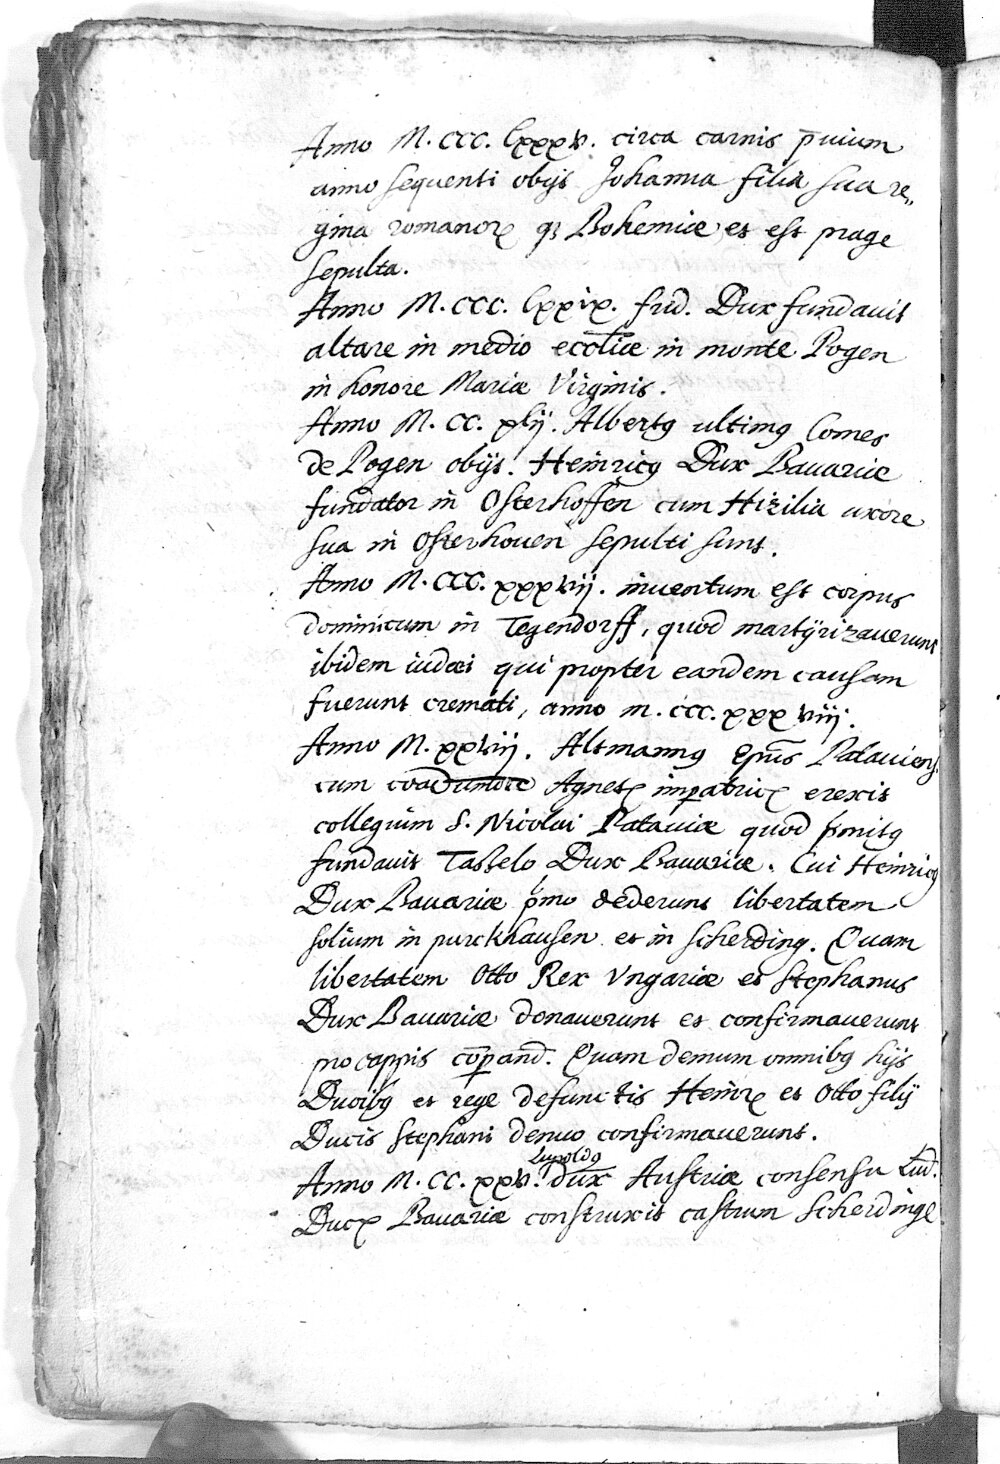 Anno M. CCC. lxxxv. circa carnis p̄uium
anno sequenti obijt Johanna filia sua re„
gina romanoꝝ qꝫ Bohemiæ et est prage
sepulta.
Anno M. CCC. lxxix. frid. Dux fundauit
altare in medio eccl̄iæ in monte Pogen
in honore Mariæ Virginis.
Anno M. CC. xlij. Albertꝰ ultimꝰ Comes
de Pogen obijt. Heinricꝰ Dux Bauariæ
fundator in Osterhoffen cum Hizilia uxore
sua in Osterhouen sepulti sunt.
Anno M. CCC. xxxvij. inuentum est corpus
dominicum in Tegendorff, quod martÿrizauerunt
ibidem iudæi qui propter eandem causam
fuerunt cremati, anno m. ccc. xxx viij.
Anno M. xxvij. Altmannꝰ Ep̄us Patauiens.
cum Agnetꝭ imꝑatricꝭ erexit
collegium S. Nicolai Patauiæ quod p̄mitꝰ
fundauit Tasselo Dux Bauariæ. Cui Heinricꝰ
Dux Bauariæ p̄mo dederunt libertatem
solium in purckhausen et in scherding. Quam
libertatem Otto Rex Vngariæ et Stephanus
Dux Bauariæ donauerunt et confirmauerunt
pro cappis cōꝑand. Quam demum omnibꝰ hijs
Ducibꝰ et rege defunctis Heinrꝭ et Otto filij
Ducis Stephani denuo confirmauerunt.
Anno M. CC. xxv. Lupoldꝰ dux Austriæ consensu Lud.
Ducꝭ Bauariæ construxit castrum Scherdinge